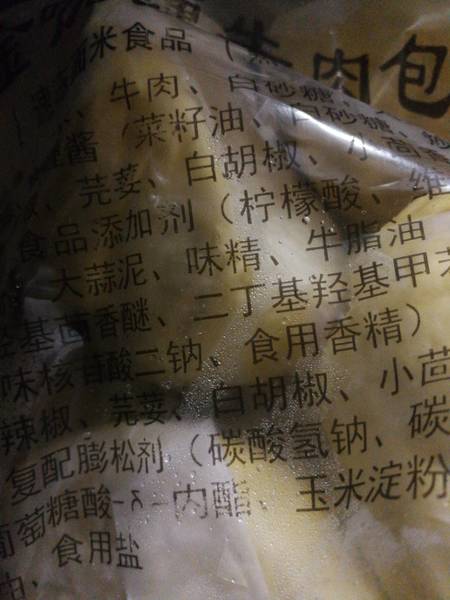 牛肉包
米食品(
、牛肉、白砂糖、
酱(菜籽油、白砂糖、
、芫荽、白胡椒、小茴香
食品添加剂(柠檬酸、维
大蒜泥、味精、牛脂油
基茴香醚、二丁基羟基甲苯
味核苷酸二钠、食用香精)
辣椒、芫荽、白胡椒、小茴
复配膨松剂(碳酸氢钠、碳
葡萄糖酸-δ-内酯、玉米淀粉
油、食用盐